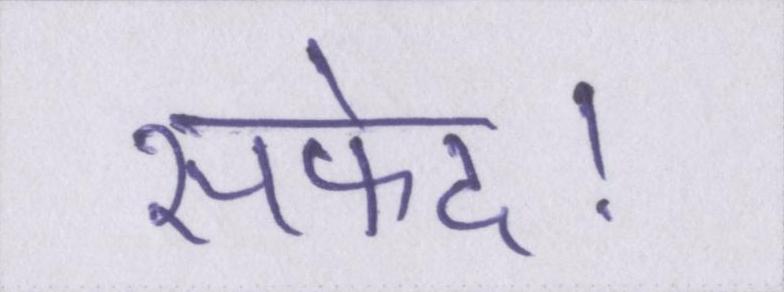 सफेद!